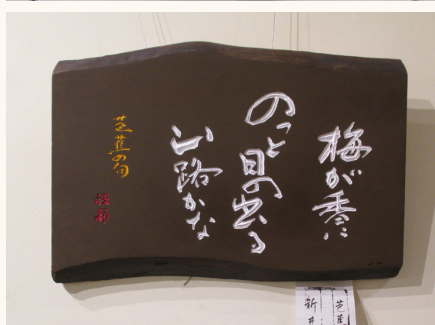 梅が香に
のつと日の出る
山路かな
芭蕉の句
芭蕉
新井